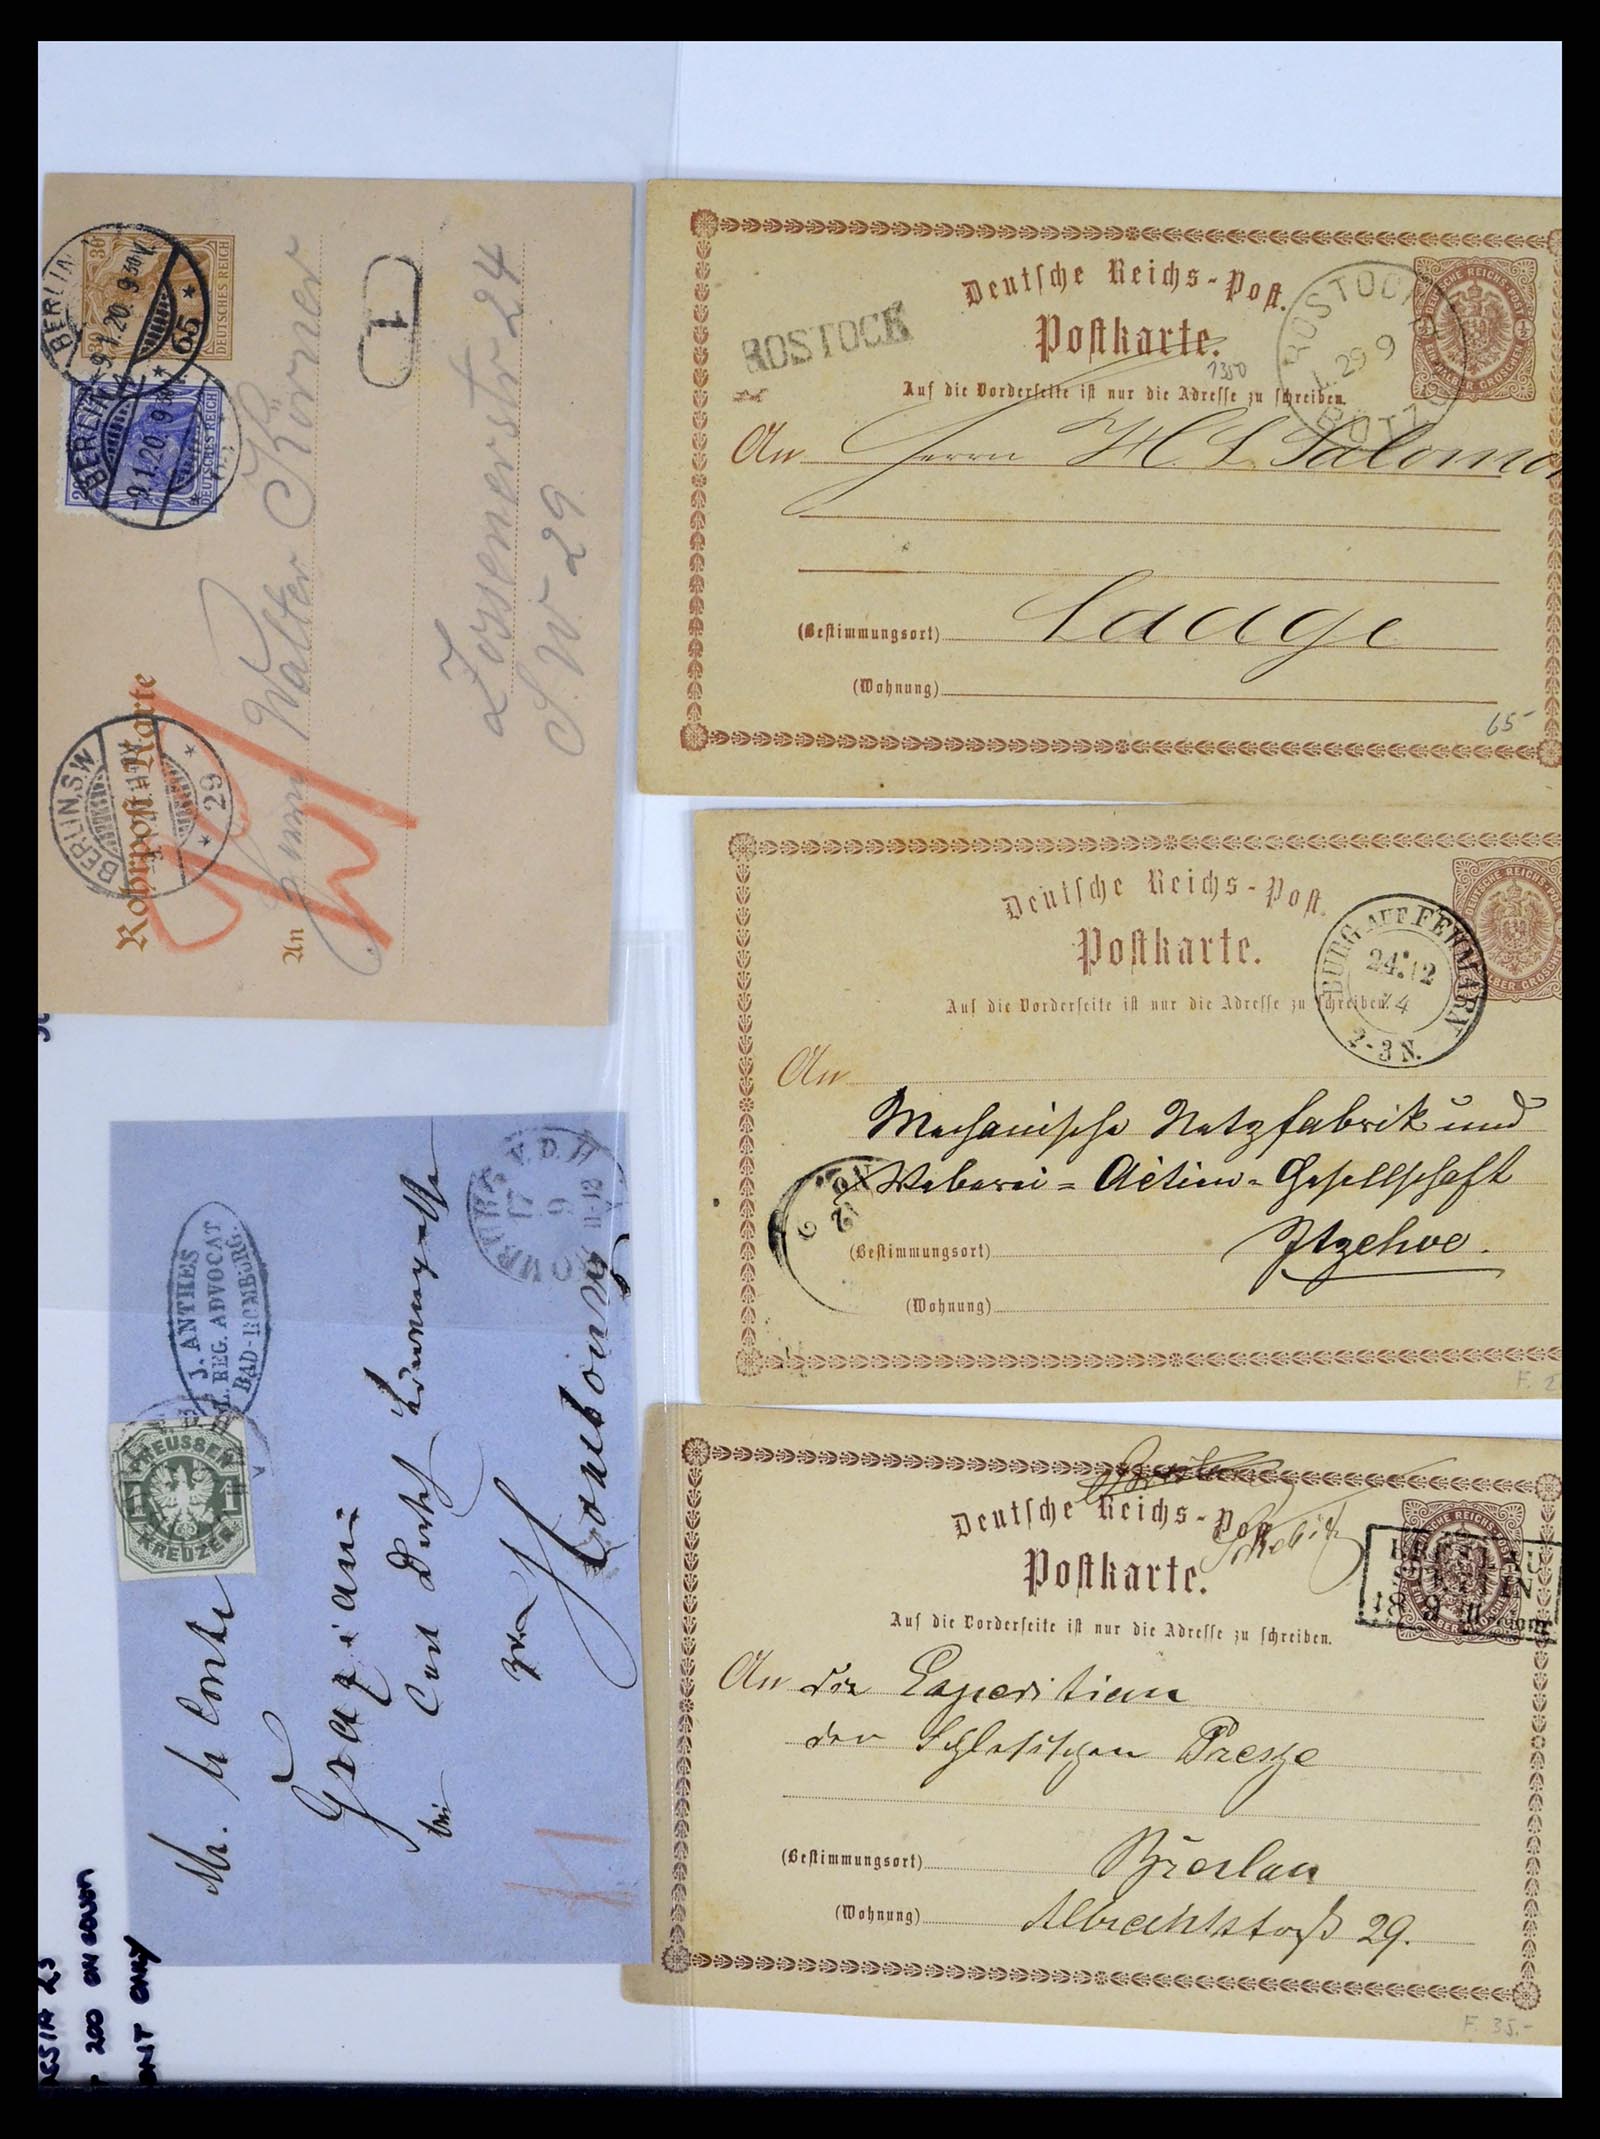 BERLIN
-9.1.20. 9 30V.
* 65 *
30
DEUTSCHES REICH
BERLIN
-9.1.20. 9 30V.
DEUTSCHES REICH
1
BERLIN.S.W.
* 29 *
Rohrpost-Karte
An Herrn Walter Körner
Zossenerstr 24
S.W. 29
Deutsche Reichs-Post.
Postkarte.
Auf die Vorderseite ist nur die Adresse zu schreiben.
ROSTOCK
ROSTOCK
29 9
DEUTSCHE REICHS-POST
EIN HALBER GROSCHEN
1350
An Herrn H. L. Salomo
(Bestimmungsort) Laage
(Wohnung)
65-
Deutsche Reichs-Post.
Postkarte.
Auf die Vorderseite ist nur die Adresse zu schreiben.
BURG AUF FEHMARN
24.12
74
2-3 N.
DEUTSCHE REICHS-POST
HALBER GROSCHEN
An
Mechanische Netzfabrik und
Weberei = Actien-Gesellschaft
(Bestimmungsort) Itzehoe.
(Wohnung)
F. 2
J. ANTHES
REG. ADVOCAT
BAD-HOMBURG.
HOMBURG V.D.H.
17
9
11-12
PREUSSEN
1 1
KREUZER
Mr. le Conte
Graziani
bei
Homburg
Deutsche Reichs-Post.
Postkarte.
Auf die Vorderseite ist nur die Adresse zu schreiben.
BRESLAU
18 9
DEUTSCHE REICHS-POST
An die Expedition
der Schlesischen Presse
(Bestimmungsort) Breslau
(Wohnung) Albrechtstraß 29.
F. 35.-
200 ON COVER
ONLY